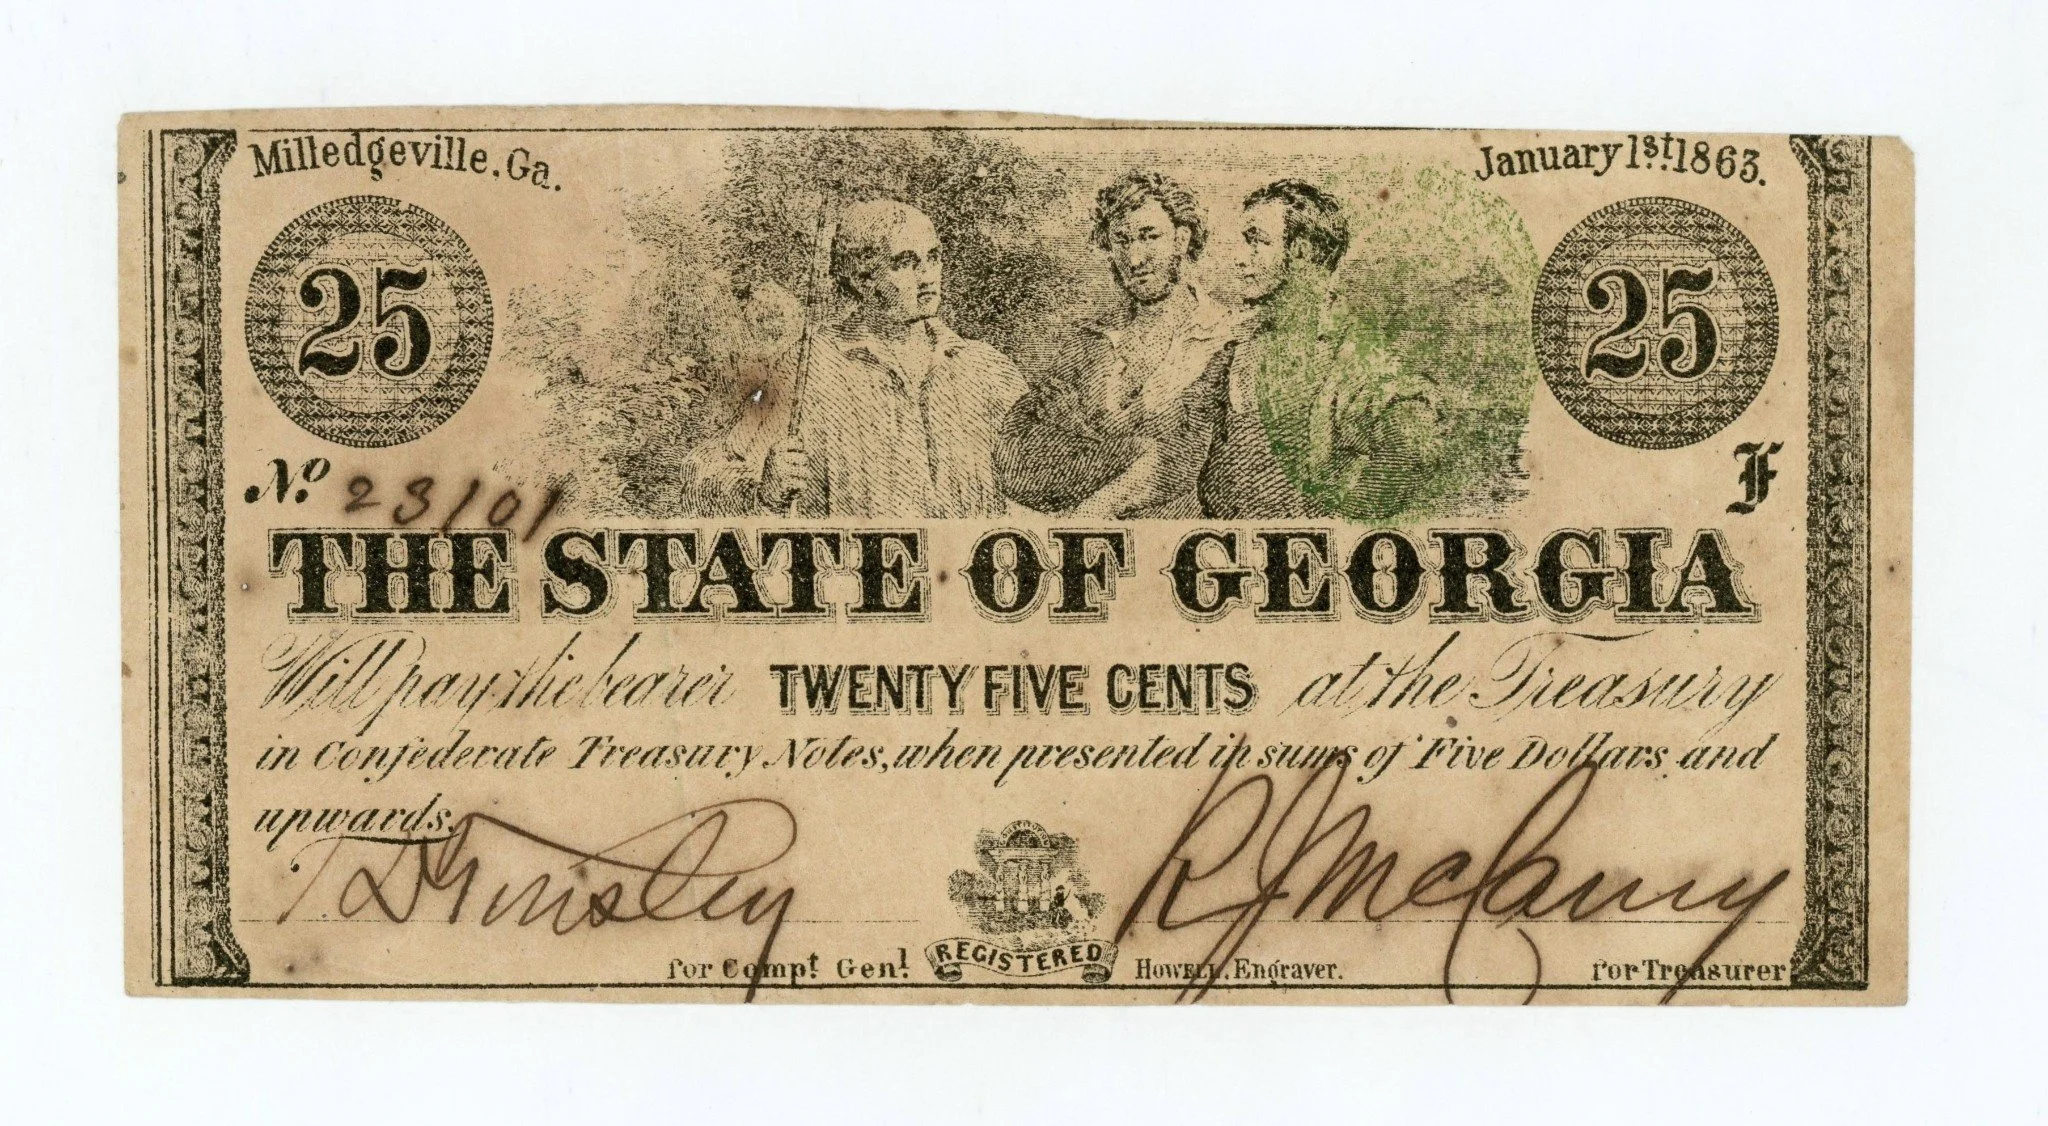 Milledgeville, Ga.
January 1st. 1863.
25
25
No. 23101
F
THE STATE OF GEORGIA
Will pay the bearer TWENTY FIVE CENTS at the Treasury
in Confederate Treasury Notes, when presented in sums of Five Dollars and
upwards.
T. D. Tinsley
R J McCamy
for Compt. Genl.
REGISTERED
HOWELL, Engraver.
for Treasurer